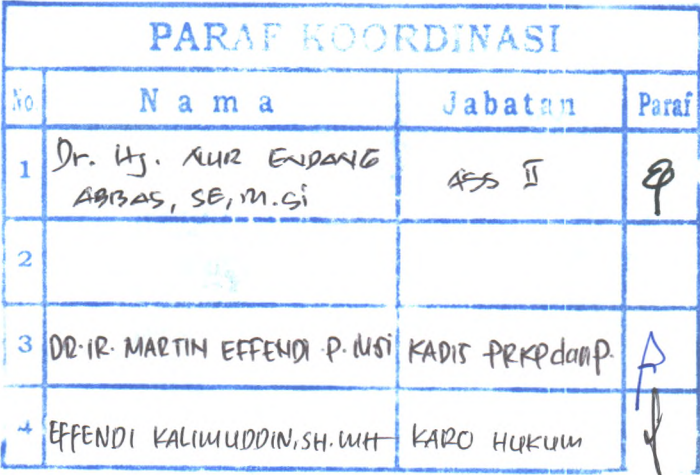 PARAF KOORDINASI
No Nama Jabatan Paraf
1 Dr. Hj. NUR ENDANG ABBAS, SE, M.Si ASS II
2
3 DR. IR. MARTIN EFFENDI P. MSi KADIS PRKP dan P.
4 EFFENDI KALIMUDDIN, SH. MH KARO HUKUM